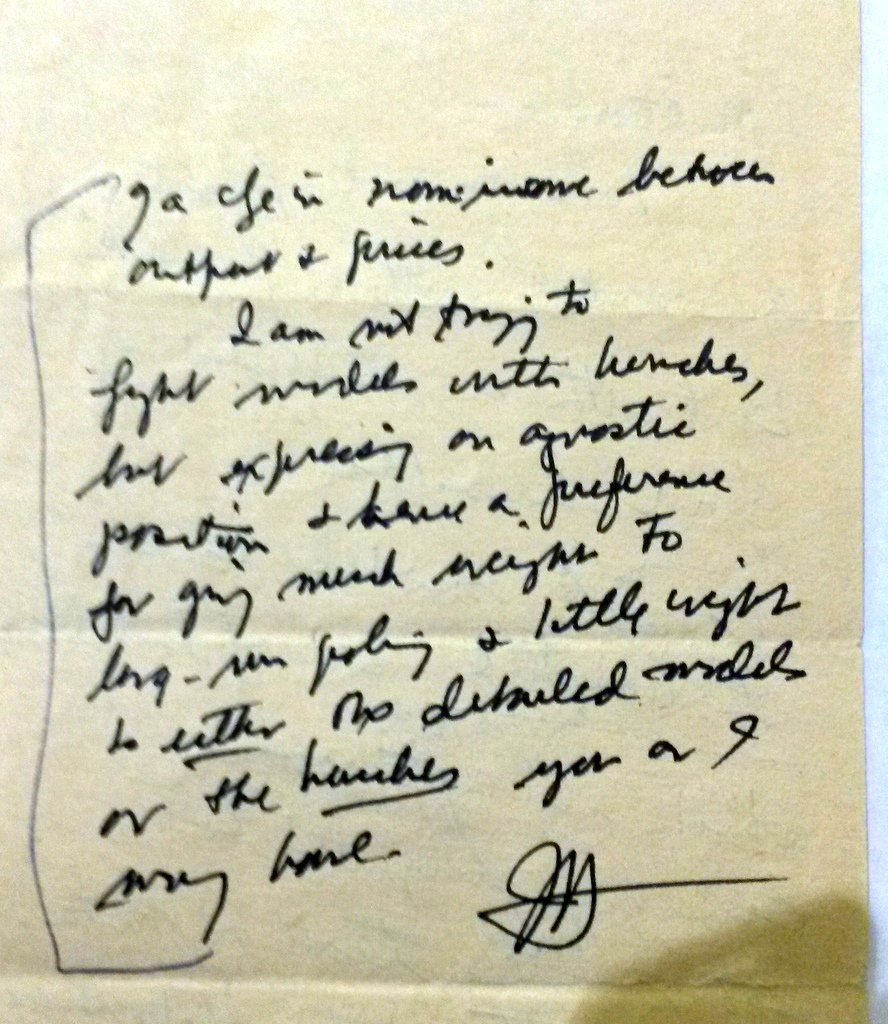 of a chge in nom. income between
output & prices.
I am not trying to
fight models with hunches,
but expressing an agnostic
position & hence a preference
for giving much weight to
long-run policy & little weight
to either the detailed models
or the hunches you or I
may have.